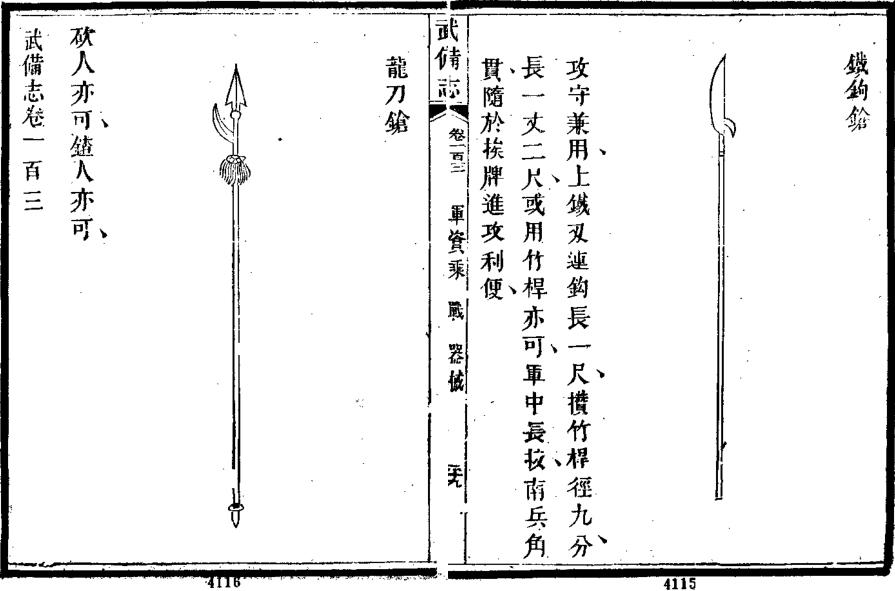 鐵鉤鎗
攻守兼用、上鐵刄連鈎長一尺、攢竹桿徑九分、
長一丈二尺、或用竹桿亦可、軍中長技、南兵角
貫、隨於挨牌進攻利便、
武備志 卷一百三 軍資乘 戰 器械
龍刀鎗
砍人亦可、人亦可、
武備志卷一百三
4116
4115